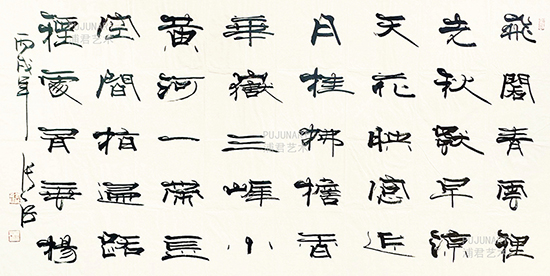 飛閣青雲裡
先秋獨早涼
天花映窗近
月桂拂檐香
華嶽三峰小
黃河一帶長
空間指歸路
煙處有垂楊
丙戌年
PUJUNART
浦君艺术